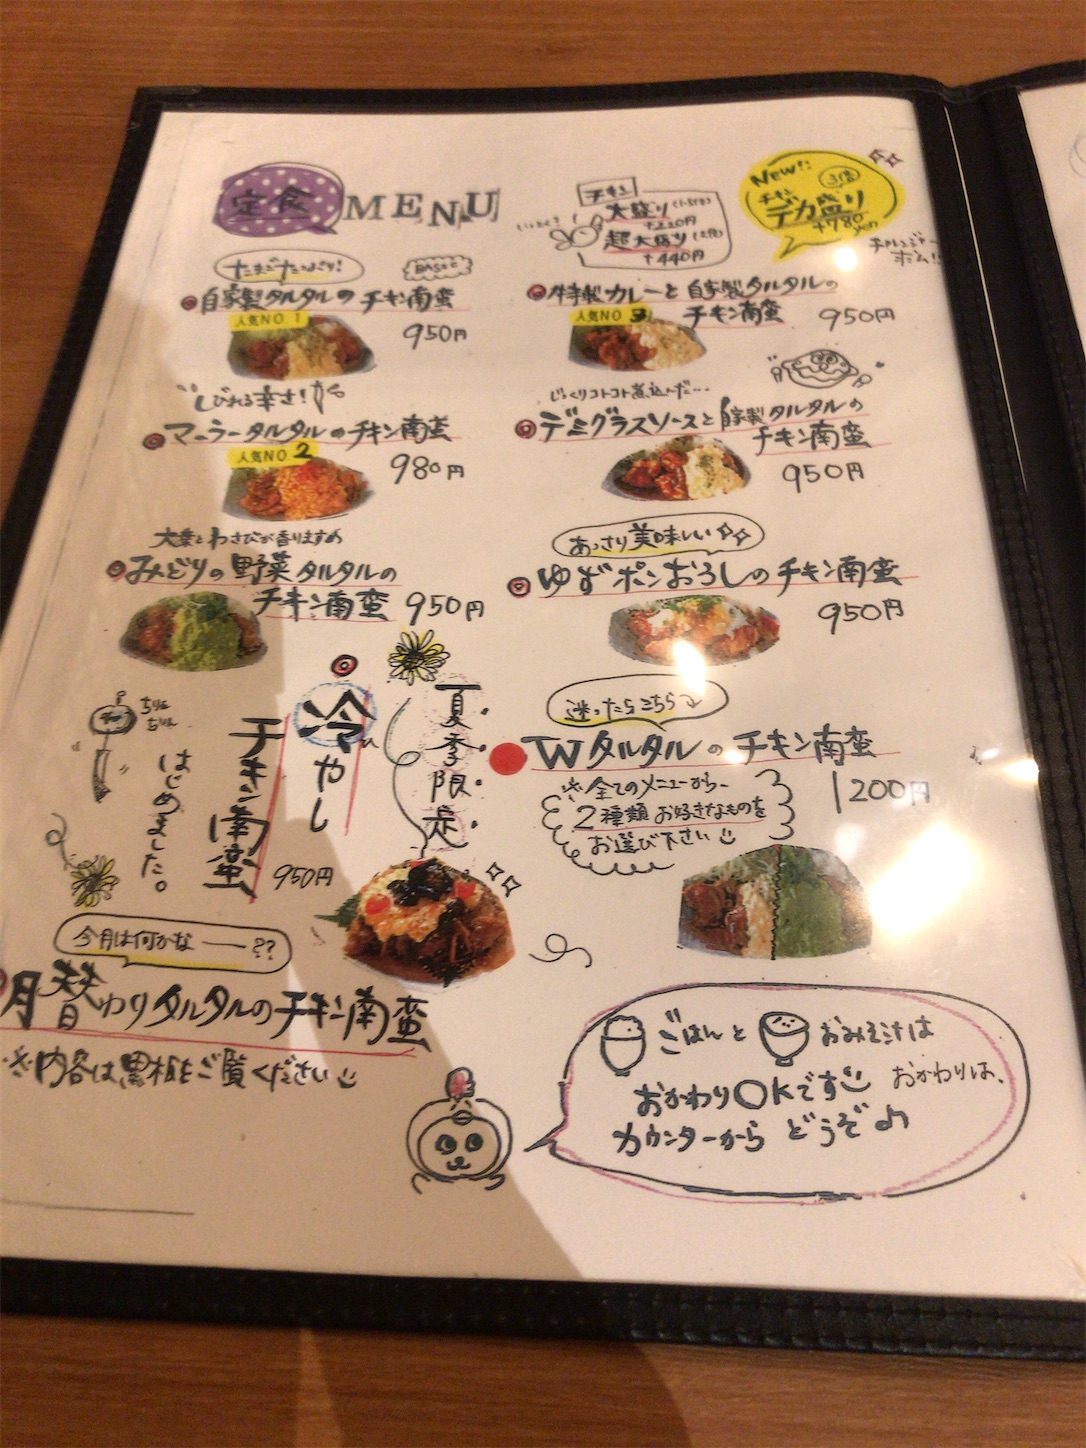 定食 MENU
チキン
大盛り
+220円
超大盛り
+440円
New!!
3倍
チキン
デカ盛り
+780yen
たまごたっぷり!
BASIC
自家製タルタルのチキン南蛮
人気NO.1
950円
特製カレーと自家製タルタルの
チキン南蛮
人気NO.3
950円
しびれる辛さ!
マーラータルタルのチキン南蛮
人気NO.2
980円
じっくりコトコト煮込んだ…
デミグラスソースと自家製タルタルの
チキン南蛮
950円
大葉とわさびが香りますめ
みどりの野菜タルタルの
チキン南蛮 950円
あっさり美味しい
ゆずポンおろしのチキン南蛮
950円
夏季限定
冷やし
チキン南蛮
950円
はじめました。
ちりん
ちりん
迷ったらこちら
Wタルタルのチキン南蛮
1200円
※全てのメニューから
2種類お好きなものを
お選び下さい
今月は何かな――??
月替わりタルタルのチキン南蛮
※内容は黒板をご覧ください
ごはんと おみそ汁は
おかわりOKです おかわりは、
カウンターから どうぞ♫